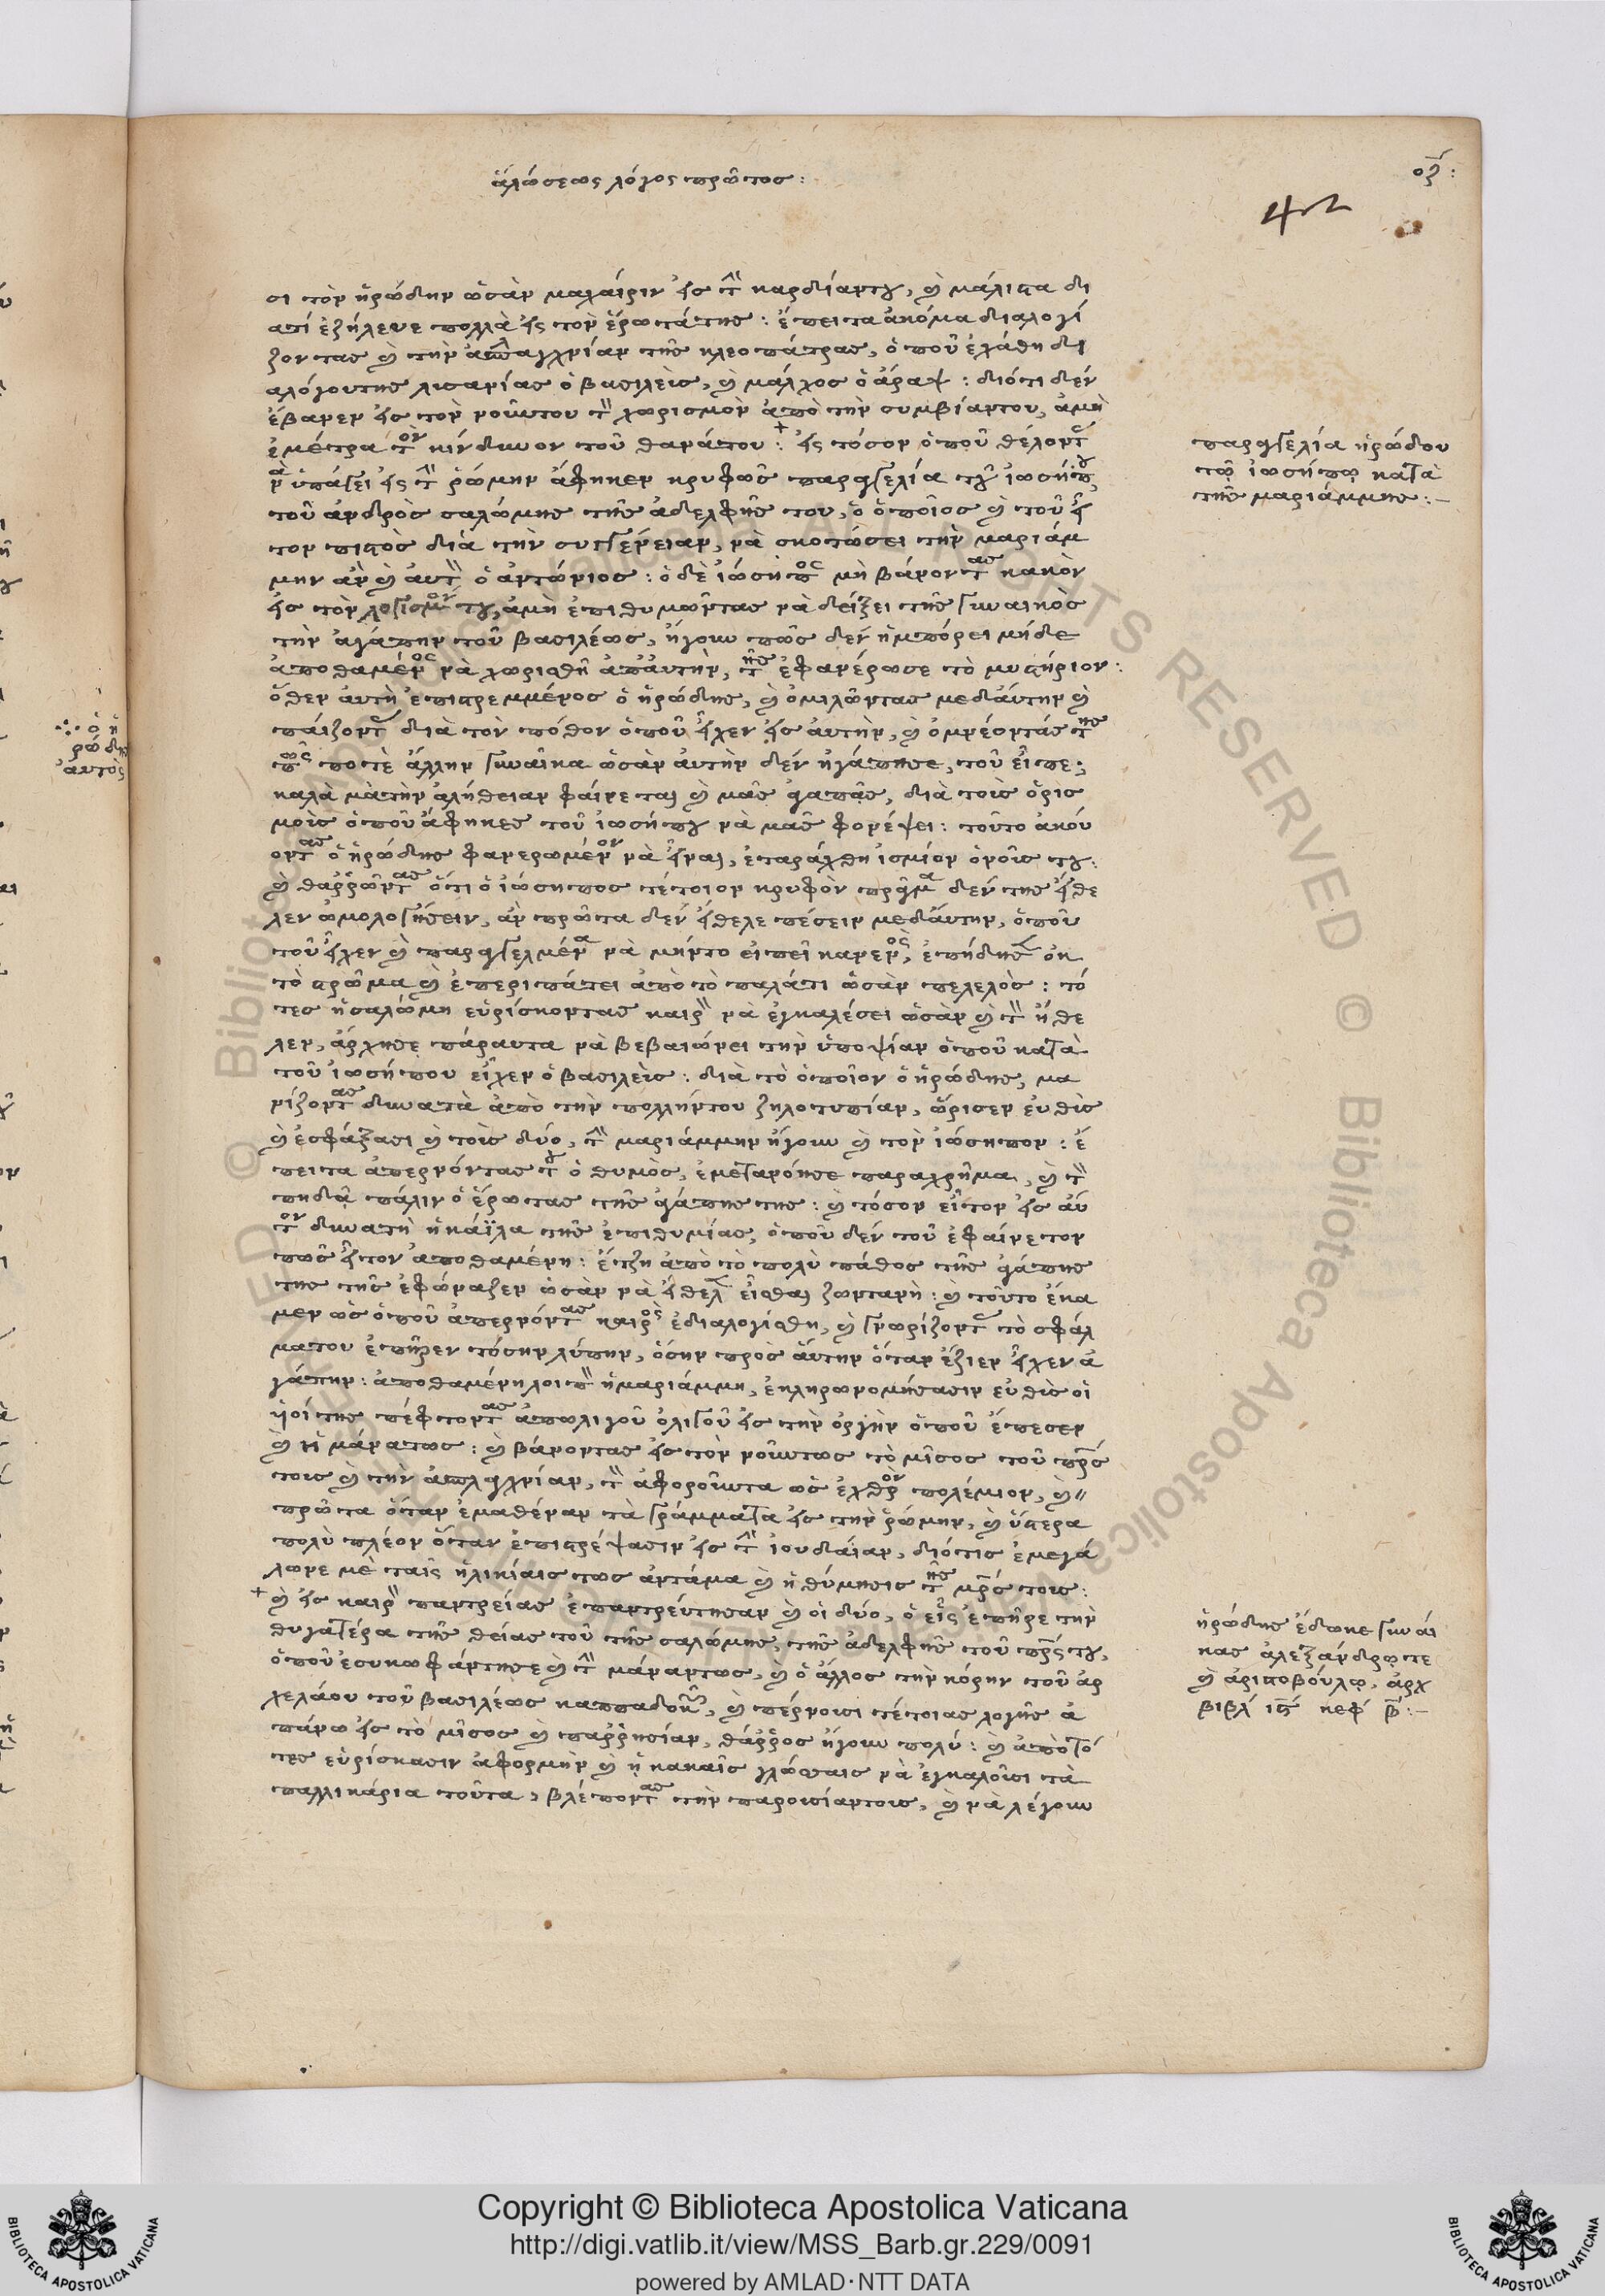 ἁλώσεως λόγος πρῶτος:
οζ:
42
σι τὸν ἡρώδην ὡσὰν μαχαίριν εἰς τὴν καρδίαντου, καὶ μάλιστα δι
ατί ἐζήλευε πολλὰ εἰς τὸν ἔρωτάτης: ἔπειτα ἀκόμα διαλογί
ζοντας καὶ τὴν ἀπλαγχνίαν τῆς κλεοπάτρας, ὁποῦ ἐχάθη δι
αλόγουτης λισανίας ὁ βασιλεὺς, καὶ μάλχος ὁ ἄραψ: διότι δὲν
ἔβανεν εἰς τὸν νοῦντου τὸν χωρισμὸν ἀπὸ τὴν συμβίαντου, ἀμὴ
ἐμέτρα τὸν κίνδυνον τοῦ θανάτου: εἰς τόσον ὁποῦ θέλοντας
νὰ ὑπάγει εἰς τὴν ῥώμην ἄφηκεν κρυφῶς παραγγελία τοῦ ἰωσήπου,
τοῦ ἀνδρὸς σαλώμης τῆς ἀδελφῆς του, ὁ ὁποῖος καὶ τοῦ ἦ
τον πιστὸς διὰ τὴν συγγένειαν, νὰ σκοτώσει τὴν μαριάμ
μην ἂν καὶ αὐτὸν ὁ ἀντώνιος: ὁ δὲ ἰώσηπος μὴ βάνοντας κακὸν
εἰς τὸν λογισμόν του, ἀμὴ ἐπιθυμῶντας νὰ δείξει τῆς γυναικὸς
τὴν ἀγάπην τοῦ βασιλέως, ἤγουν πῶς δὲν ἠμπόρει μήδε
ἀποθαμένος νὰ χωρισθῆ ἀπαὐτὴν, τῆς ἐφανέρωσε τὸ μυστήριον:
ὅθεν αὐτὴ ἐπιστρεμμένος ὁ ἡρώδης, καὶ ὁμιλῶντας μεδἄυτην καὶ
παίζοντας διὰ τὸν πόθον ὁποῦ εἶχεν εἰς αὐτὴν, καὶ ὀμνέοντάς της
πῶς ποτὲ ἄλλην γυναῖκα ὡσὰν αὐτὴν δὲν ἠγάπησε, τοῦ εἶπε·
καλὰ μὰτὴν ἀλήθειαν φαίνεται καὶ μᾶς ἀγαπᾶς, διὰ τοὺς ὁρισ
μοὺς ὁποῦ ἄφηκες τοῦ ἰωσήπου νὰ μᾶς φονέψει: τοῦτο ἀκού
οντας ὁ ἡρώδης φανερωμένον νὰ εἶναι, ἐταράχθη ἰσμίον ὁνοῦς του:
καὶ θαῤῥῶντας ὅτι ὁ ἰώσηπος τέτοιον κρυφὸν πρᾶγμα δὲν της ἤθε
λεν ὡμολογήσειν, ἂν πρῶτα δὲν ἤθελε πέσειν μεδἄυτην, ὁποῦ
τοῦ εἶχεν καὶ παραγγελμένα νὰ μήντο εἰπεῖ κανενὸς, ἐπήδησεν ἐκ
τὸ στρῶμα καὶ ἐπεριπάτει ἀπὸ τὸ παλάτι ὡσὰν πελελὸς: τό
τες ἡσαλώμη εὑρίσκοντας καιρὸν νὰ ἐγκαλέσει ὡσὰν καὶ τὸν ἤθε
λεν, ἄρχησε πάραυτα νὰ βεβαιώνει τὴν ὑποψίαν ὁποῦ κατὰ
τοῦ ἰωσήπου εἶχεν ὁ βασιλεὺς: διὰ τὸ ὁποῖον ὁ ἡρώδης, μα
νίζοντας δυνατὰ ἀπὸ τὴν πολλήντου ζηλοτυπίαν, ὥρισεν εὐθὺς
καὶ ἐσφάξασι καὶ τοὺς δύο, τὴν μαριάμμην ἤγουν καὶ τὸν ἰώσηπον: ἔ
πειτα ἀπερνόντας του ὁ θυμὸς, ἐμετανόησε παραχρῆμα, καὶ τὸν
πηδᾶ πάλιν ὁ ἔρωτας τῆς ἀγάπης της: καὶ τόσον εἶτον εἰς αὐ
τὸν δυνατὴ ἡκάϊλα τῆς ἐπιθυμίας, ὁποῦ δὲν τοῦ ἐφαίνετον
πῶς ἦτον ἀποθαμένη: ἔτζη ἀπὸ τὸ πολὺ πάθος τῆς ἀγάπης
της τῆς ἐφώναζεν ὡσὰν νὰ ἤθελεν εἶσθαι ζωντανὴ: καὶ τοῦτο ἔκα
μεν ὡς ὁποῦ ἀπερνόντας καιρὸς ἐδιαλογίσθη, καὶ γνωρίζοντας τὸ σφάλ
ματου ἐπῆρεν τόσην λύπην, ὅσην πρὸς ἄυτην ὅταν ἔζιεν εἶχεν ἀ
γάπην: ἀποθαμένηλοιπὸν ἡμαριάμμη, ἐκληρωνομήσασιν εὐθὺς οἱ
ὑιοί της πέφτοντας ἀπωλιγοῦ ὀλιγοῦ εἰς τὴν ὀργὴν ὁποῦ ἔπεσεν
καὶ ἡ μάνατως: καὶ βάνοντας εἰς τὸν νοῦντως τὸ μῖσος τοῦ πατρός
τους καὶ τὴν ἀπλαγχνίαν, τὸν ἀφοροῦντα ὡς ἐχθρὸν πολέμιον, καὶ
πρῶτα ὅταν ἐμαθέναν τὰ γράμματα εἰς τὴν ῥώμην, καὶ ὕστερα
πολὺ πλέον ὅταν ἐπιστρέψασιν εἰς τὴν ἰουδαίαν, διότις ἐμεγά
λωνε μὲ ταῖς ἡλικίαις τως ἀντάμα καὶ ἡ θύμησις τῆς μητρός τους:
καὶ εἰς καιρὸν παντρείας ἐπαντρεύτησαν καὶ οἱ δύο, ὁ εἷς ἐπῆρε τὴν
θυγατέρα τῆς θείας τοῦ τῆς σαλώμης, τῆς ἀδελφῆς τοῦ πατρός του,
ὁποῦ ἐσυκωφάντησε καὶ τὴν μάναντως, καὶ ὁ ἄλλος τὴν κόρην τοῦ ἀρ
χελάου τοῦ βασιλέως καππαδοκῶν, καὶ πέρνουσι τέτοιας λογῆς ἀ
πάνω εἰς τὸ μῖσος καὶ παῤῥησίαν, θάῤῥος ἤγουν πολύ: καὶ ἀπὸτό
τες εὑρίσκασιν ἀφορμὴν καὶ ᾑ κακαῖς γλώσσαις νὰ ἐγκαλοῦσι τὰ
παλλικάρια τοῦτα, βλέποντας τὴν παρουσίαντους, καὶ νὰ λέγουν
παραγγελία ἡρώδου
τῷ ἰωσήπῳ κατὰ
τῆς μαριάμμης:-
ἡρώδης ἔδωκε γυναί
κας ἀλεξάνδρῳ τε
καὶ ἀριστοβούλῳ, ἀρχ
βιβλ ιϛ κεφ β:-
ὁ ἡ
ρώδης
αὐτὸς
Copyright © Biblioteca Apostolica Vaticana
http://digi.vatlib.it/view/MSS_Barb.gr.229/0091
powered by AMLAD·NTT DATA
BIBLIOTECA APOSTOLICA VATICANA
BIBLIOTECA APOSTOLICA VATICANA